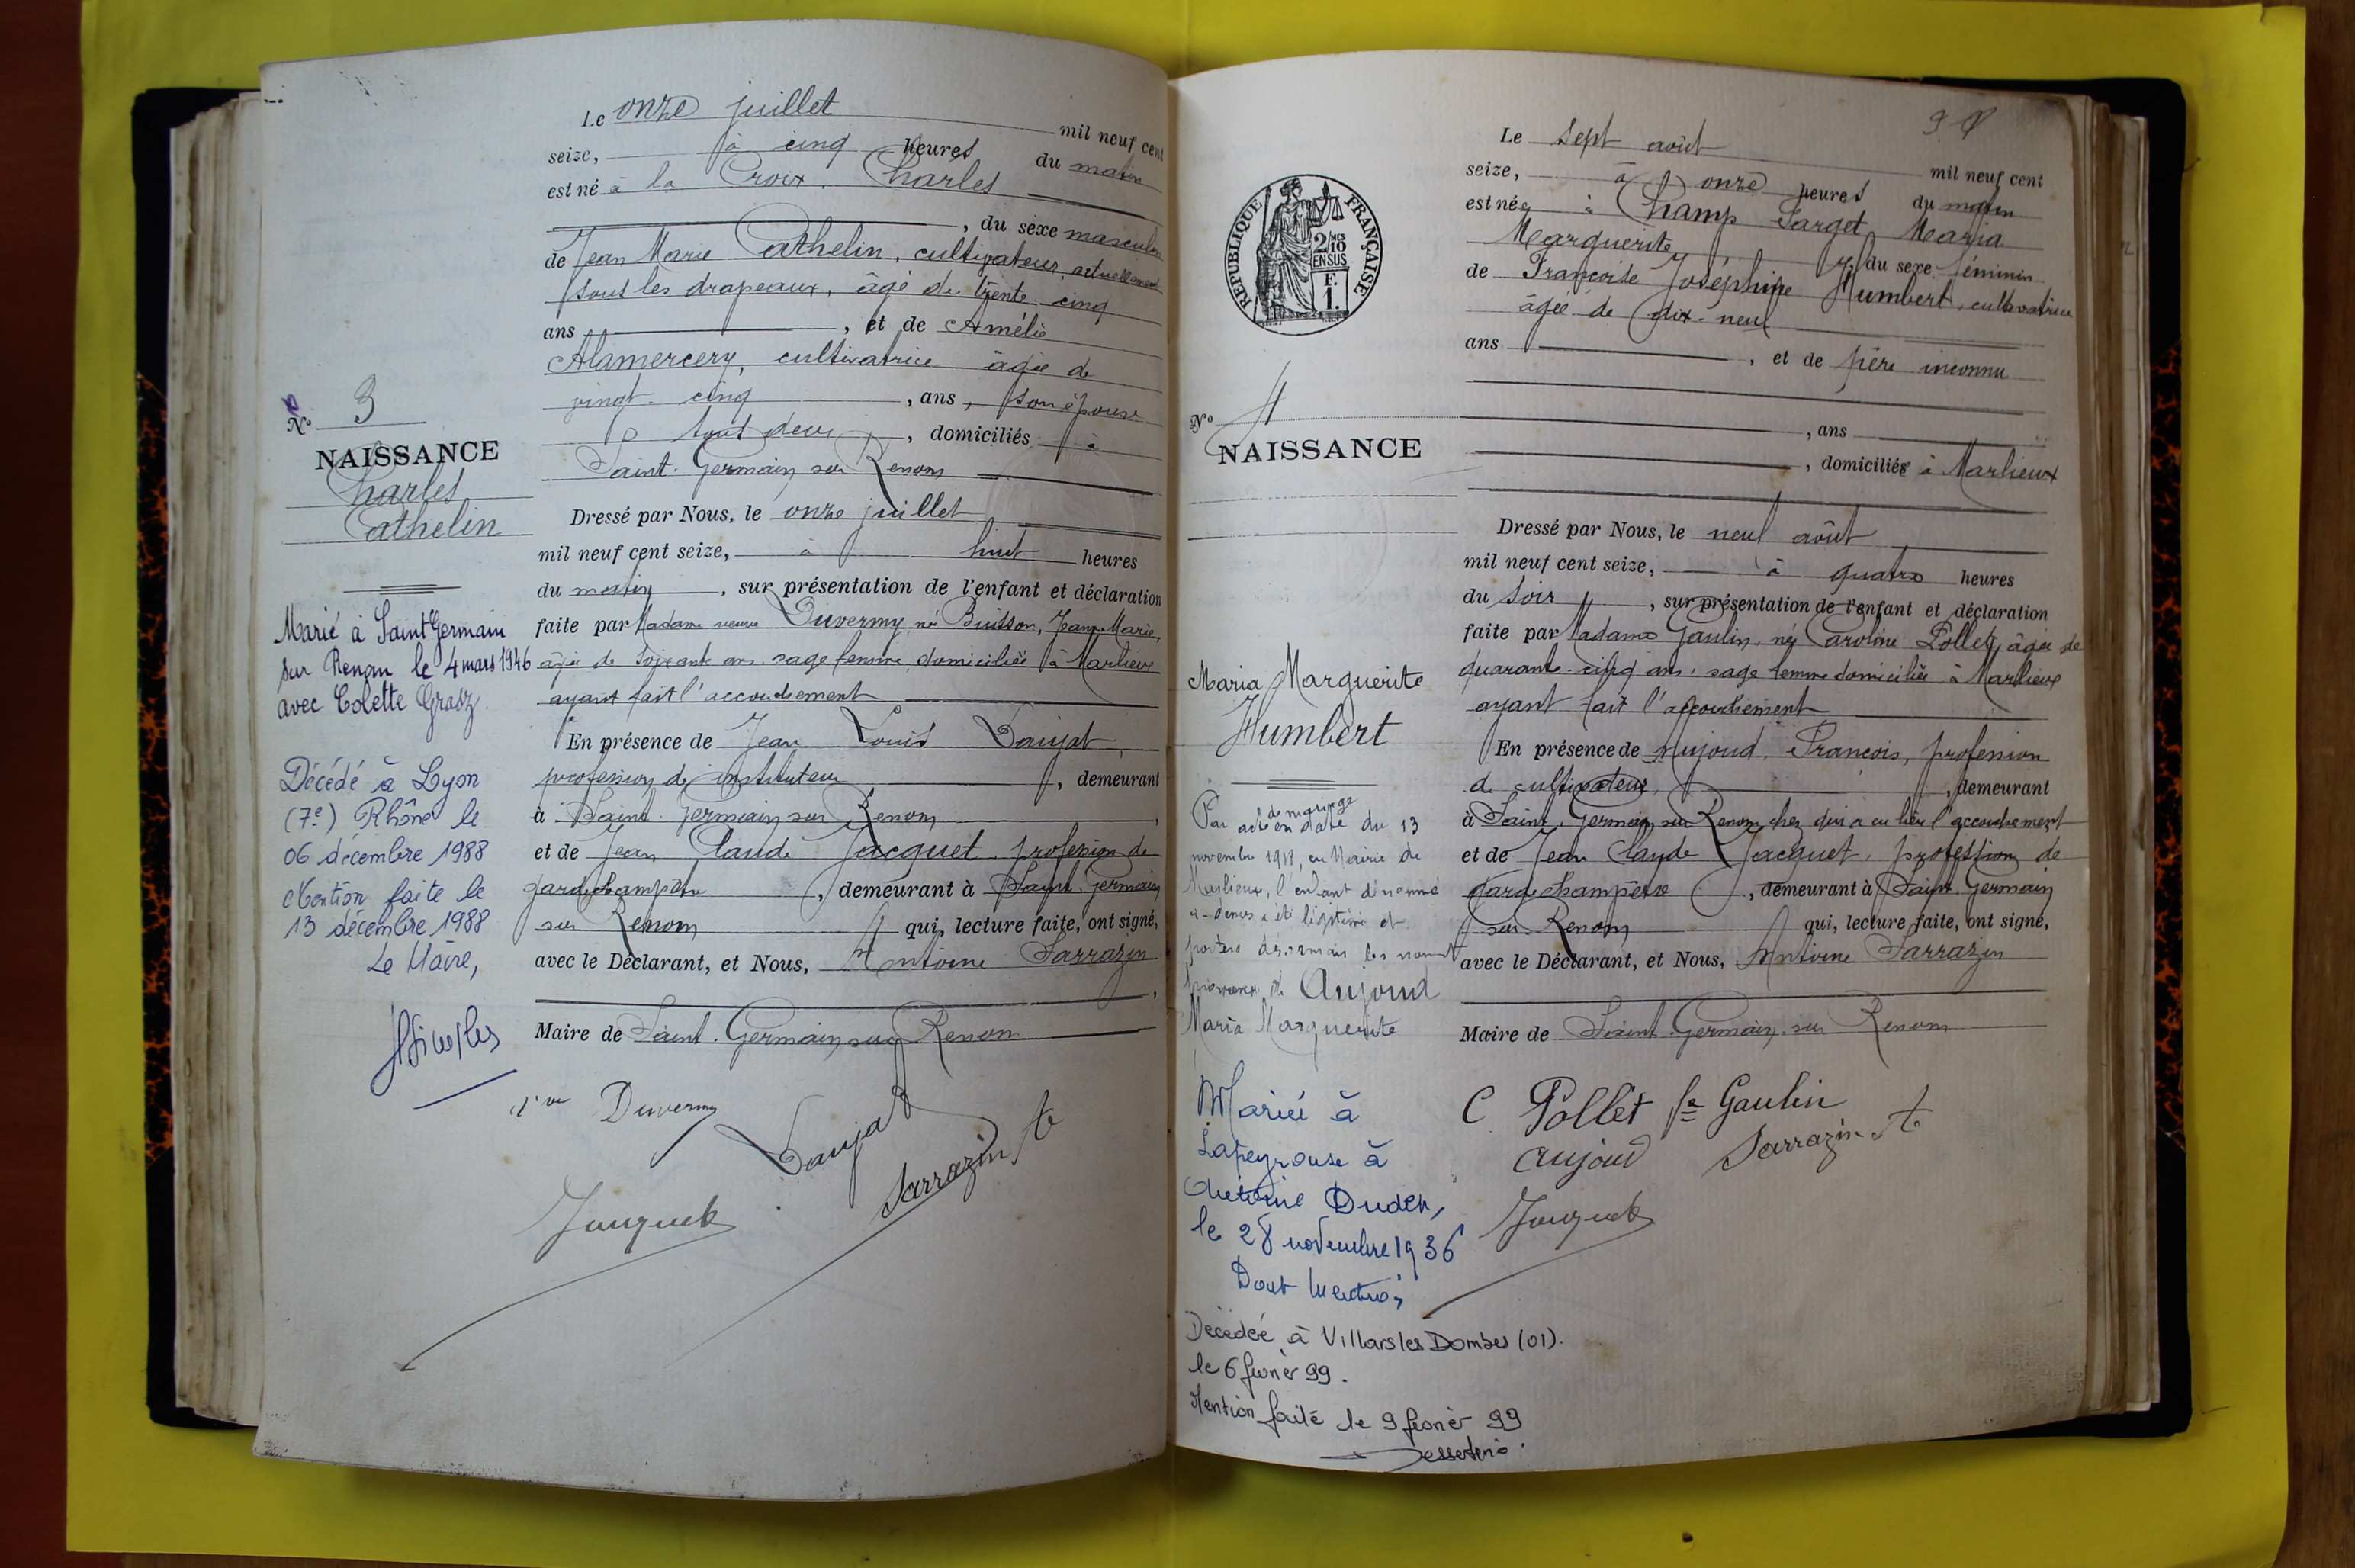 Le onze juillet mil neuf cent
seize, à cinq heures du matin
est né à la Croix. Charles
, du sexe masculin
de Jean Marie Cathelin, cultivateur, actuellement
sous les drapeaux, âgé de trente cinq
ans , et de Amélie
Alamercery, cultivatrice âgée de
vingt-cinq , ans, son épouse
tous deux , domiciliés à
Saint-Germain sur Renom
Dressé par Nous, le onze juillet
mil neuf cent seize, à huit heures
du matin , sur présentation de l'enfant et déclaration
faite par Madame veuve Duvermy né Buisson, Jeanne Marie,
âgée de soixante ans. sage femme domiciliée à Marlieux
ayant fait l'accouchement
En présence de Jean Louis Daujat,
profession d'instituteur , demeurant
à Saint-Germain sur Renom ,
et de Jean Claude Jacquet, profession de
garde champêtre , demeurant à Saint-Germain
sur Renom qui, lecture faite, ont signé,
avec le Déclarant, et Nous, Antoine Sarrazin
Maire de Saint-Germain sur Renom
Vve Duvermy
Daujat
Sarrazin At
Jacquet
No 3
NAISSANCE
Charles
Cathelin
Marié à Saint Germain
sur Renon le 4 mars 1946
avec Colette Grasz.
Décédé à Lyon
(7e) Rhône le
06 décembre 1988
Mention faite le
13 décembre 1988
Le Maire,
Le sept août mil neuf cent
seize, à onze heures du matin
est née à Champ Sarget Maria
Marguerite , du sexe féminin
de Françoise Joséphine Humbert, cultivatrice
âgée de dix-neuf
ans , et de père inconnu
, ans
, domiciliée à Marlieux
Dressé par Nous, le neuf août
mil neuf cent seize, à quatre heures
du soir , sur présentation de l'enfant et déclaration
faite par Madame Gaulin, née Caroline Pollet, âgée de
quarante-cinq ans, sage femme domiciliée à Marlieux
ayant fait l'accouchement
En présence de Aujoud, François, profession
de cultivateur, , demeurant
à Saint-Germain sur Renom chez qui a eu lieu l'accouchement
et de Jean Claude Jacquet, profession de
garde champêtre , demeurant à Saint-Germain
sur Renom qui, lecture faite, ont signé,
avec le Déclarant, et Nous, Antoine Sarrazin
Maire de Saint-Germain sur Renom
C Pollet fe Gaulin
Aujoud Sarrazin At
Jacquet
RÉPUBLIQUE FRANÇAISE
2/10
EN SUS
F.
1.
No 4
NAISSANCE
Maria Marguerite
Humbert
Par acte de mariage en date du 13
novembre 1918, en Mairie de
Marlieux, l'enfant dénommé
ci-dessus a été légitimé et
portera désormais les noms et
prénoms de Aujoud
Maria Marguerite
Mariée à
Lapeyrouse à
Antoine
le 28 novembre 1936
Dont mention
Décédée à Villars les Dombes (01).
le 6 février 99.
Mention faite le 9 février 99